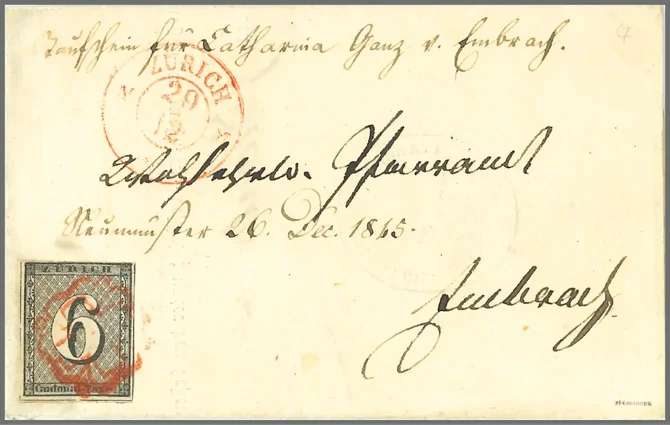 Taufschein für Catharina Ganz v. Embrach.
ZÜRICH
29
12
Wohlehrw. Pfarramt
Neumünster 26. Dec. 1845.
Embrach
ZÜRICH
6
Cantonal-Taxe